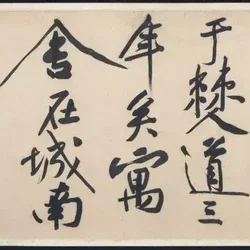 于僰道三
年矣寓
舍在城南